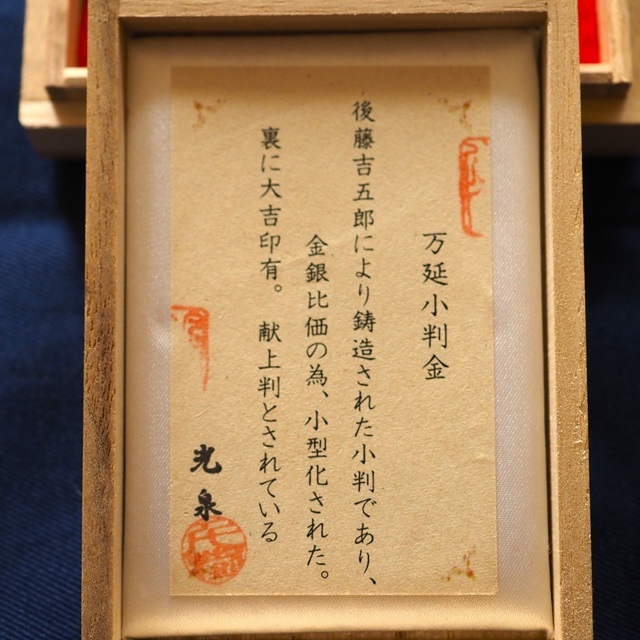 万延小判金
後藤吉五郎により鋳造された小判であり、
金銀比価の為、小型化された。
裏に大吉印有。 献上判とされている
光泉